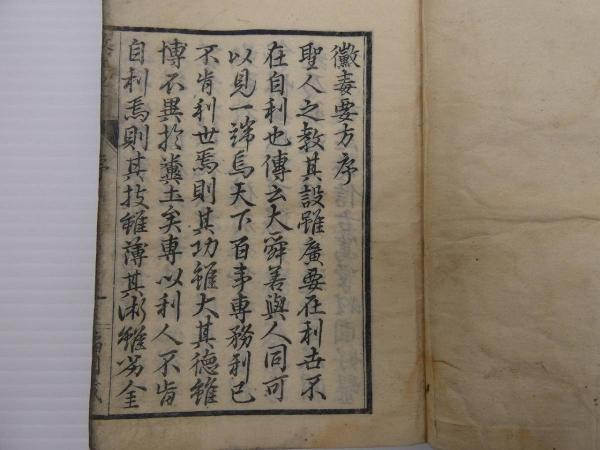 黴毒要方序
聖人之教其設雖廣要在利世不
在自利也傳云大舜善與人同可
以見一端焉天下百事專務利己
不肯利世焉則其功雖大其德雖
博不異於糞土矣專以利人不肯
自利焉則其技雖薄其術雖劣全
序
一